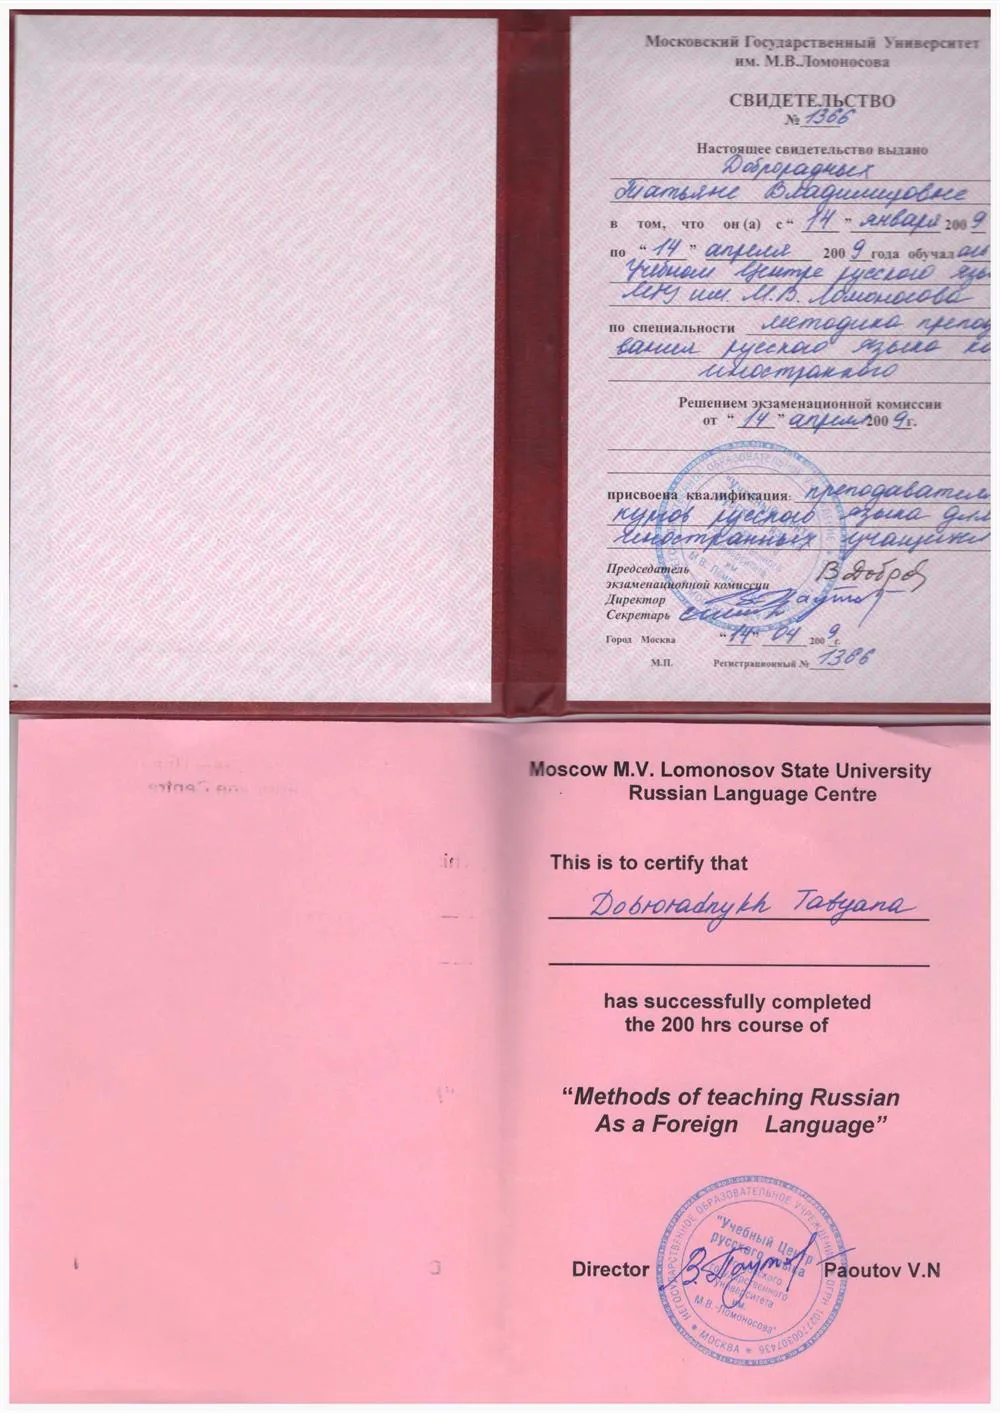 Московский Государственный Университет
им. М.В.Ломоносова
СВИДЕТЕЛЬСТВО
№ 1366
Настоящее свидетельство выдано
Доброрадных
Татьяне Владимировне
в том, что он(а) с “ 14 ” января 2009
по “ 14 ” апреля 2009 года обучал
Учебном Центре русского
МГУ им. М.В. Ломоносова
по специальности методика препод
вания русского языка ка
иностранного
Решением экзаменационной комиссии
от “ 14 ” апреля 2009 г.
присвоена квалификация: преподавател
курсов русского языка для
иностранных учащихс
Председатель
экзаменационной комиссии
Директор
Секретарь
Город Москва “14” 04 2009 г.
М.П. Регистрационный № 1366
Moscow M.V. Lomonosov State University
Russian Language Centre
This is to certify that
Dobroradnykh Tatyana
has successfully completed
the 200 hrs course of
“Methods of teaching Russian
As a Foreign Language”
Director Paoutov V.N
НЕГОСУДАРСТВЕННОЕ ОБРАЗОВАТЕЛЬНОЕ УЧРЕЖДЕНИЕ ОГРН 1027700307436 * МОСКВА *
"Учебный Центр
русского языка
государственного
университета
им.
М.В. Ломоносова"